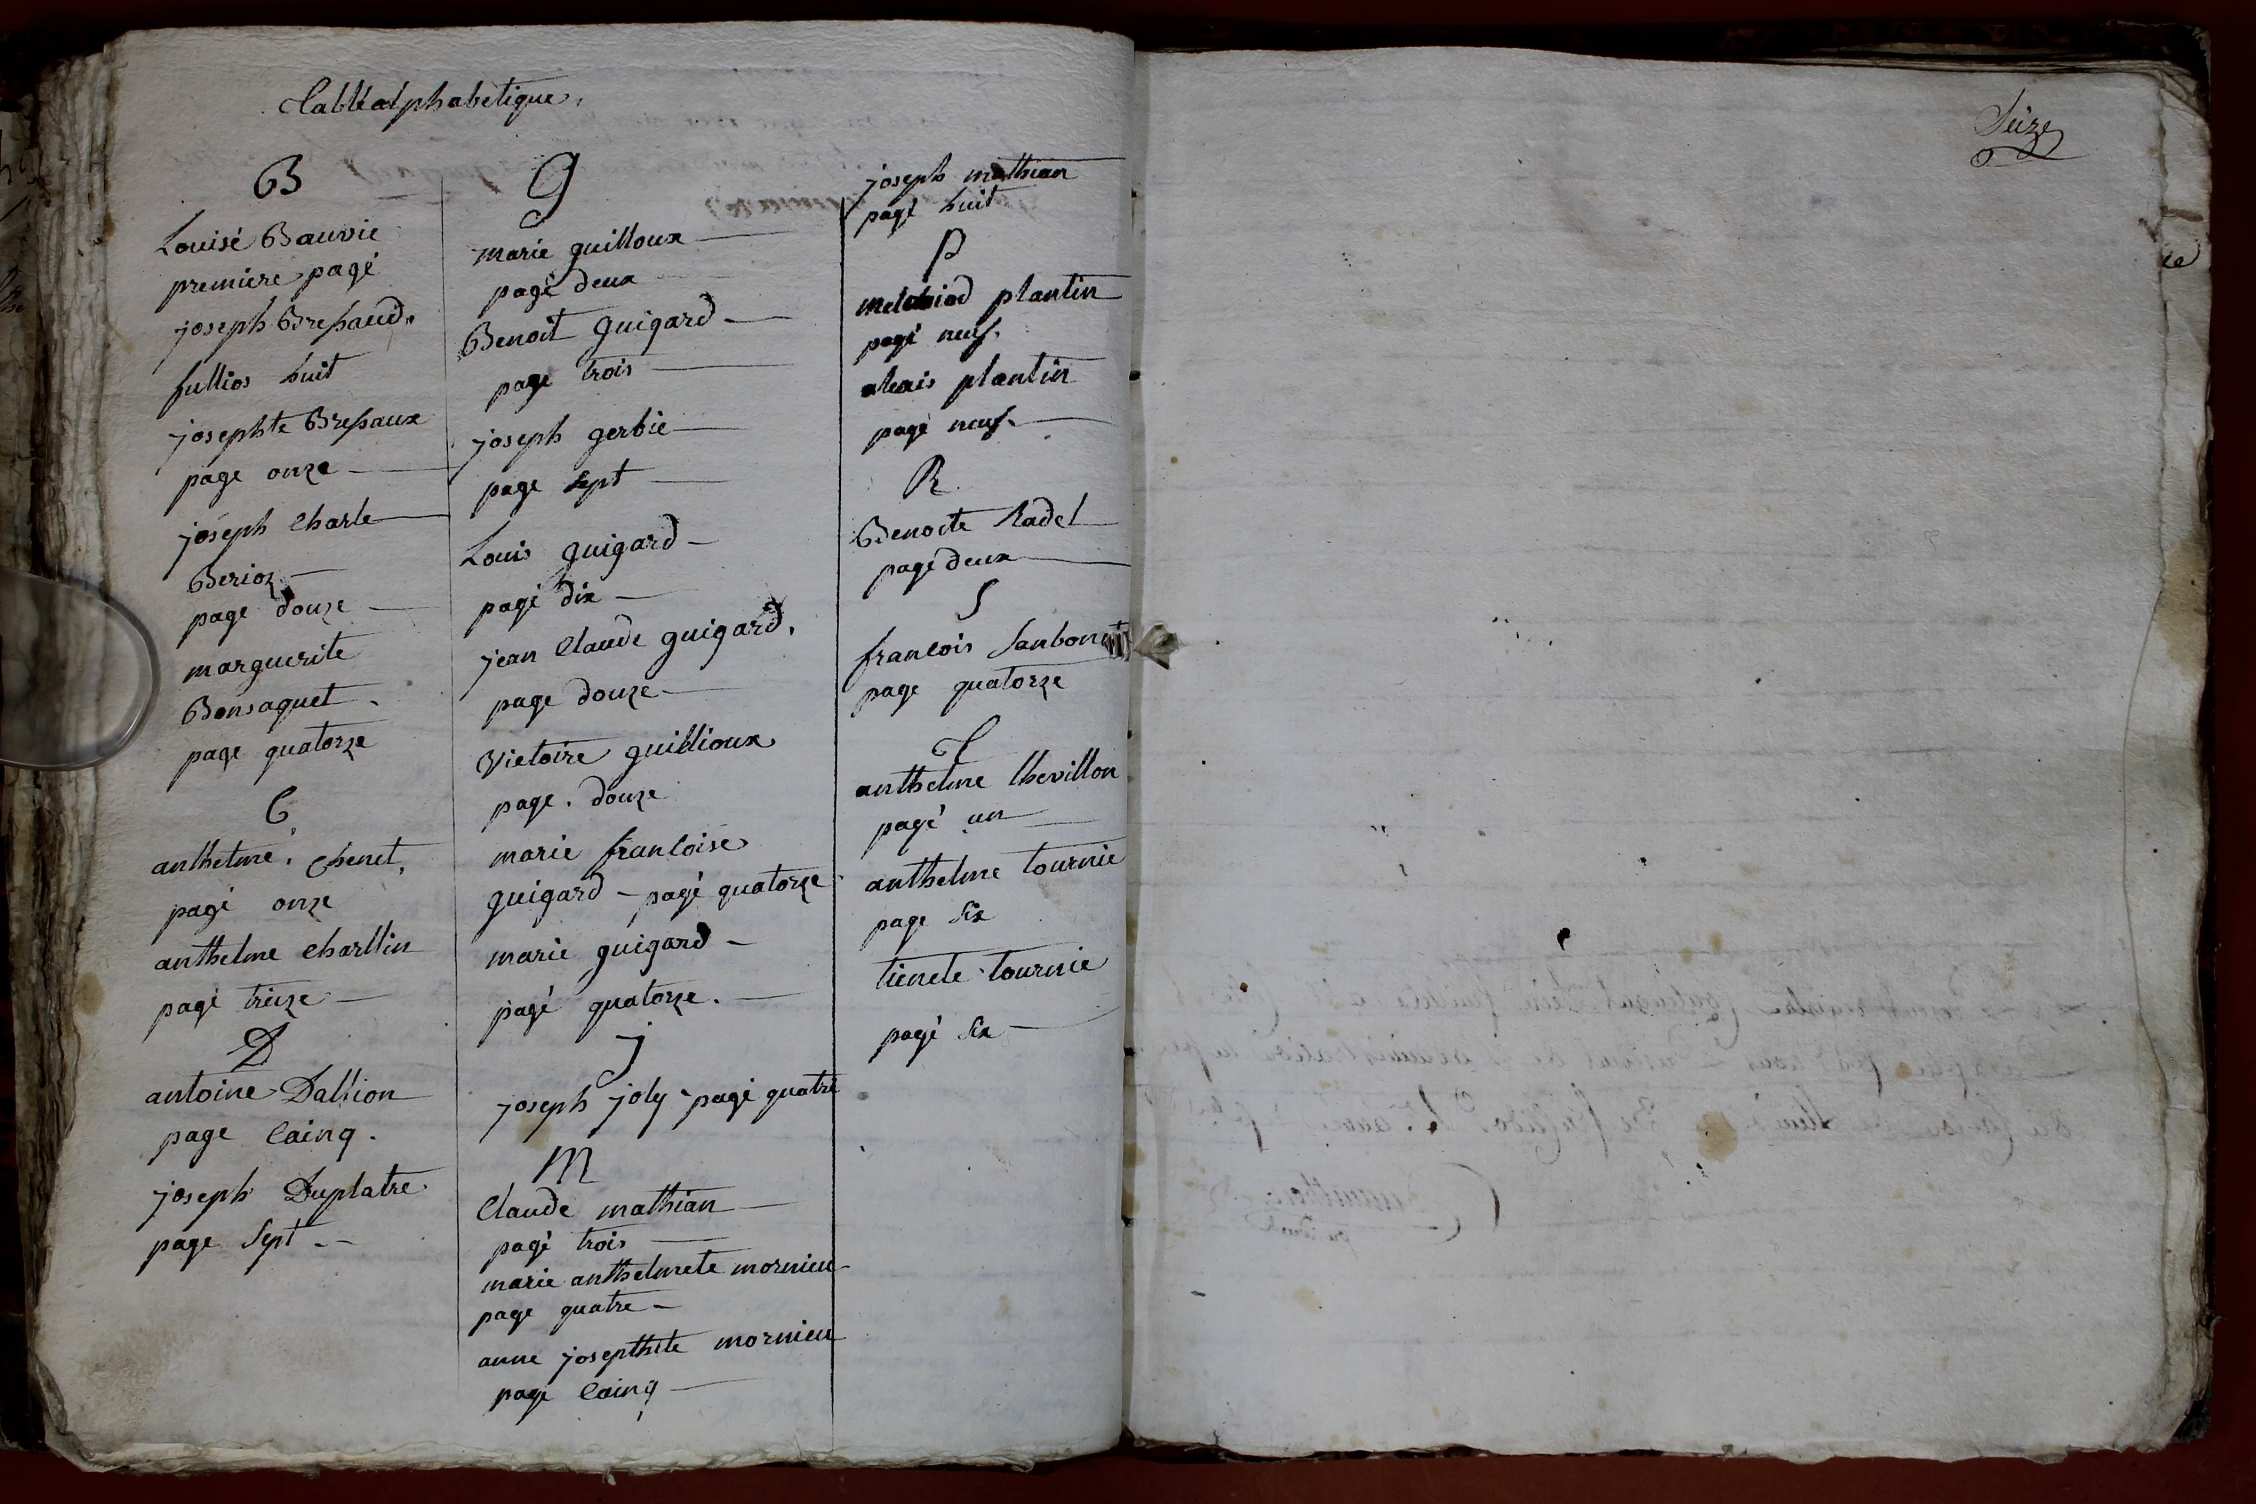 Table alphabetique.
B
Louisé Bauvie
premiere pagé
joseph Bressaud.
fullios huit
josephte Bressaux
page onze
joseph Charle
Berioz
page douze
marguerite
Bonsaquet
page quatorze
C
anthelme. Chenet.
pagé onze
anthelme Charllin
pagé trieze
D
antoine Dallion
page Cainq.
joseph Duplatre
page Sept
G
marie guilloux
pagé deux
Benoit Guigard
page trois
joseph gerbie
page Sept
Louis guigard
pagé dix
jean Claude guigard.
page douze
Victoire guillioux
page. douze
marie francoise
guigard - pagé quatorze
marie guigard
pagé quatorze.
j
joseph joly - pagé quatre
M
Claude mathian
pagé trois
marie anthelmete mornieu
page quatre
anne josephte mornieu
page Cainq
joseph mathian
pagé huit
P
plantin
pagé neuf.
alexis plantin
pagé neuf.
R
Benoite Radel
pagé deux
S
francois Sanbonet
page quatorze
T
anthelme thevillon
pagé un
anthelme tournie
page Six
tienete tournie
pagé Six
Seize